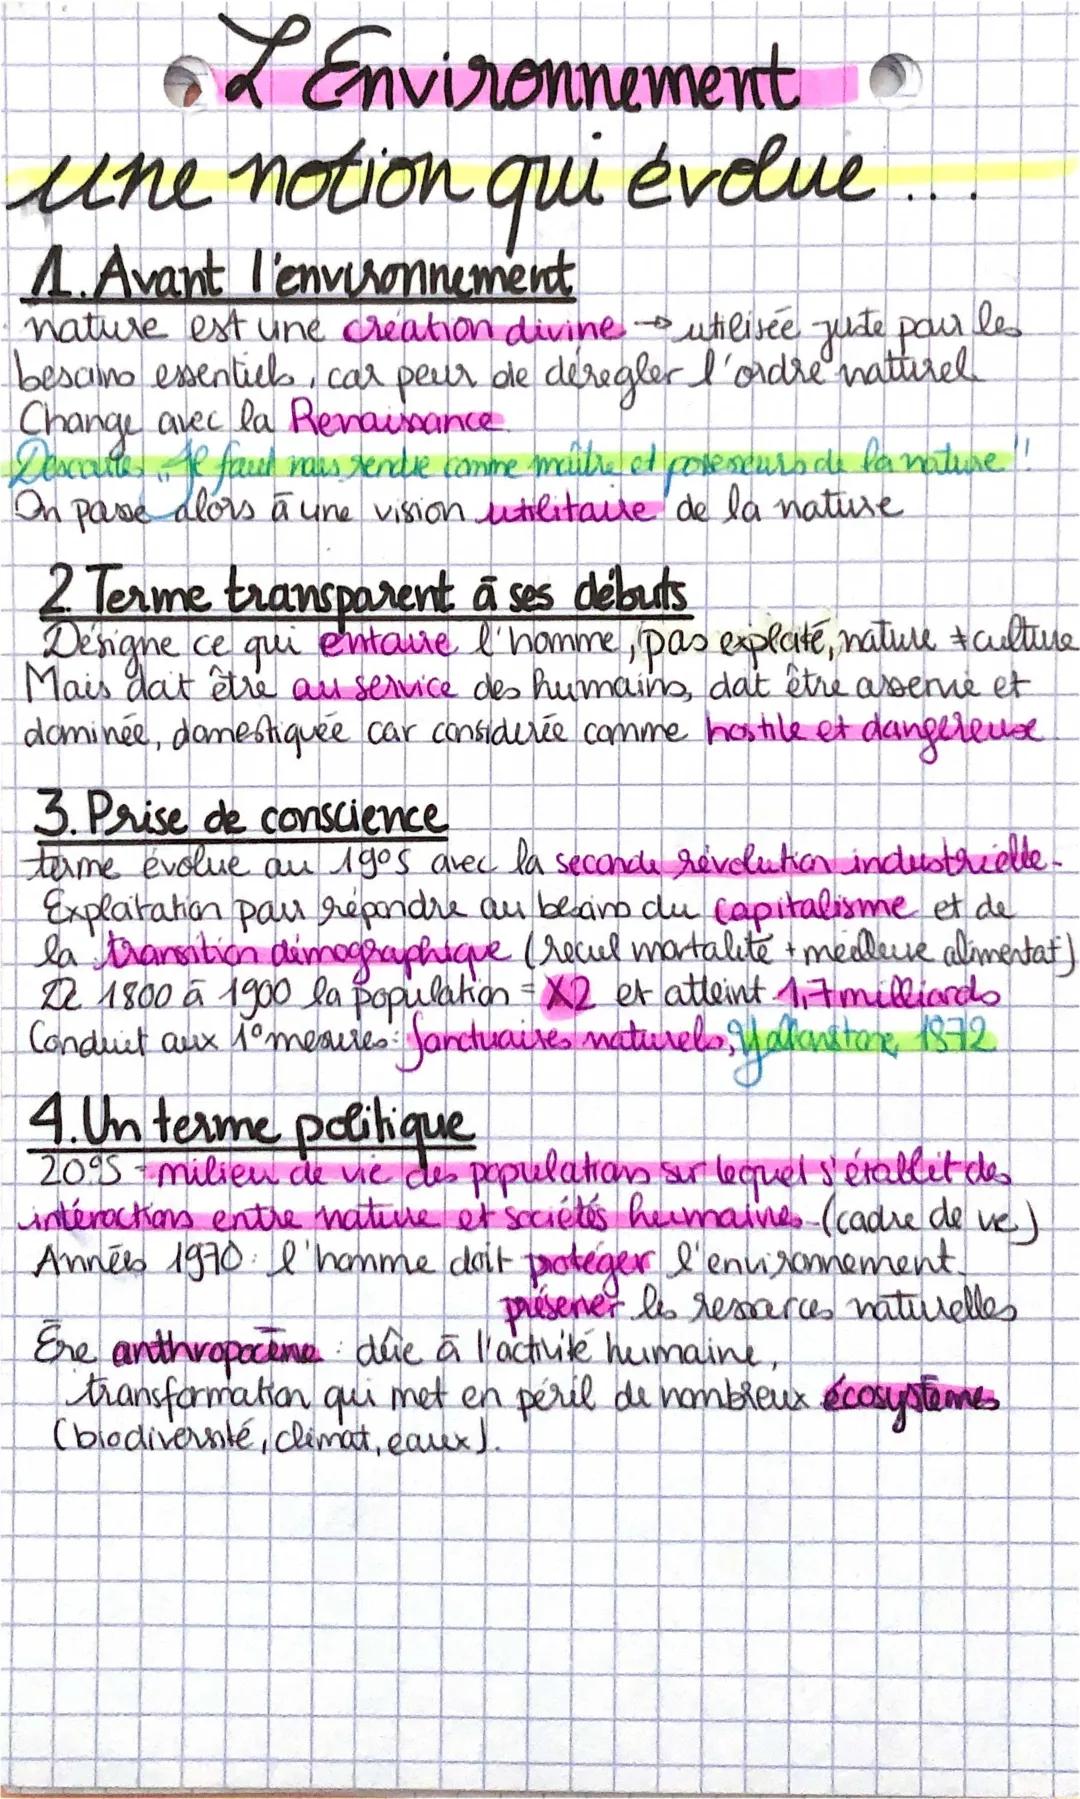 L'Environnement
une notion qui évolue...
1. Avant l'environnement
nature est une création divine → utilisée juste pour les
besoins essentiels, car peur de dérégler l'ordre naturel
Change avec la Renaissance
Descartes "Il faut nous rendre comme maître et possesseurs de la nature"
On passe alors à une vision utilitaire de la nature
2. Terme transparent à ses débuts
Désigne ce qui entoure l'homme, pas exploité, nature ≠ culture
Mais doit être au service des humains, doit être asservie et
dominée, domestiquée car considérée comme hostile et dangereuse
3. Prise de conscience
terme évolue au 19°s avec la seconde révolution industrielle.
Exploitation pour répondre au besoins du capitalisme et de
la transition démographique (recul mortalité + meilleure alimentat°)
1800 à 1900 la population = X2 et atteint 1,7 milliards
Conduit aux 1° mesures: Sanctuaires naturels, Yellowstone, 1872
4. Un terme politique
20°S = milieu de vie des populations sur lequel s'établit des
intéractions entre nature et sociétés humaines (cadre de vie)
Années 1970: l'homme doit protéger l'environnement.
préserver les ressources naturelles
Ère anthropocène: dûe à l'activité humaine,
transformation qui met en péril de nombreux écosystèmes
(biodiversité, climat, eaux).